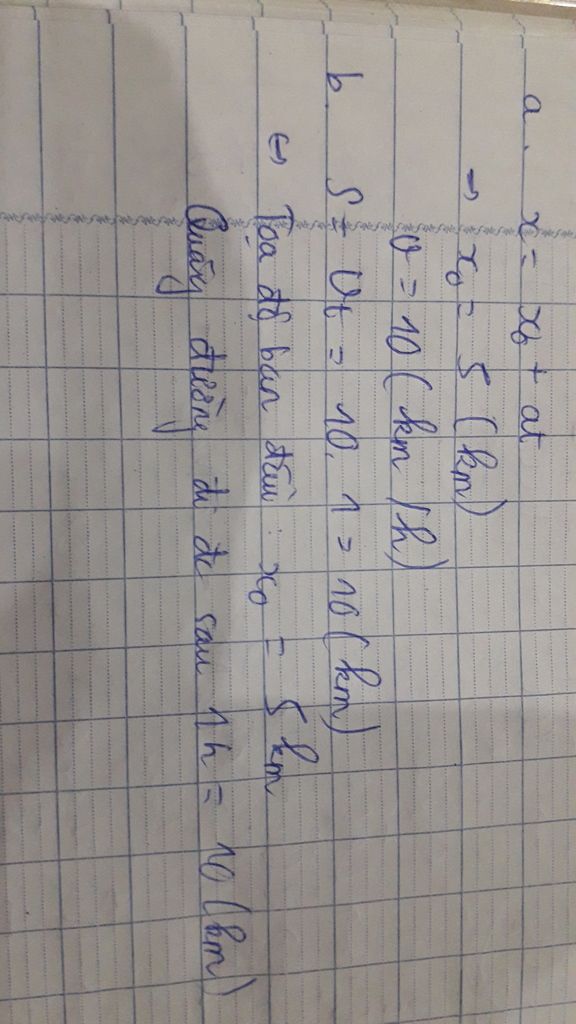 a. x = x₀ + at
→ x₀ = 5 (km)
v = 10 (km/h)
b. S = vt = 10.1 = 10 (km)
↔ Tọa độ ban đầu: x₀ = 5 km
Quãng đường đi đc sau 1h = 10 (km)